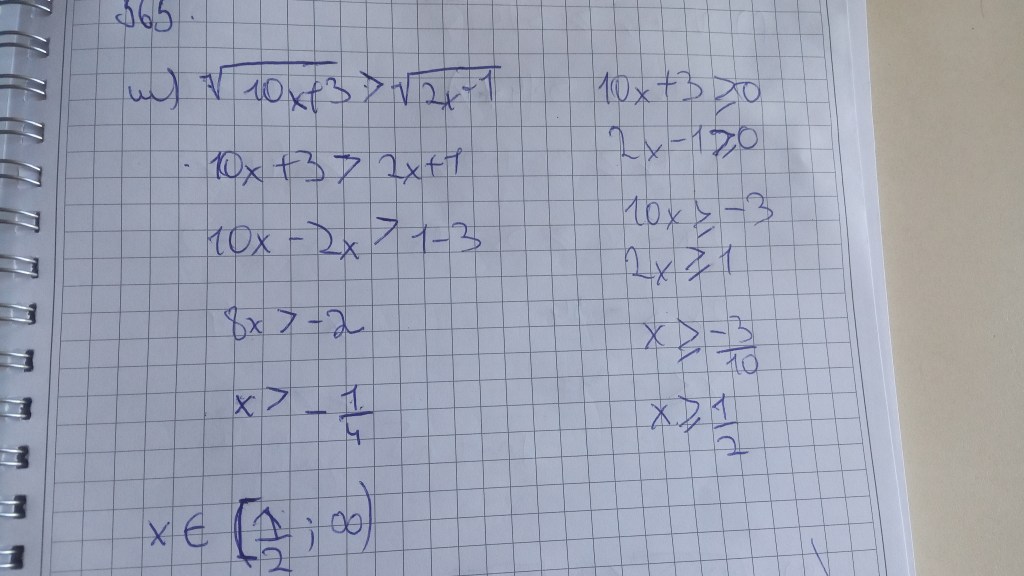 565.
ш) √10x+3 > √2x-1
10x+3 > 2x+1
10x - 2x > 1-3
8x > -2
x > - 1/4
x ∈ [1/2 ; ∞)
10x+3 ≥ 0
2x-1 ≥ 0
10x ≥ -3
2x ≥ 1
x ≥ -3/10
x ≥ 1/2